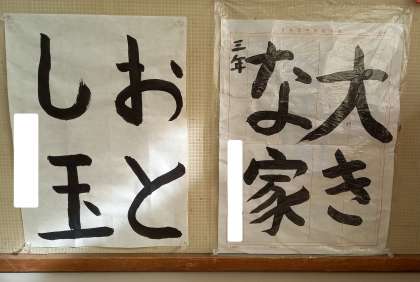 おと
し玉
大き
な家
三年